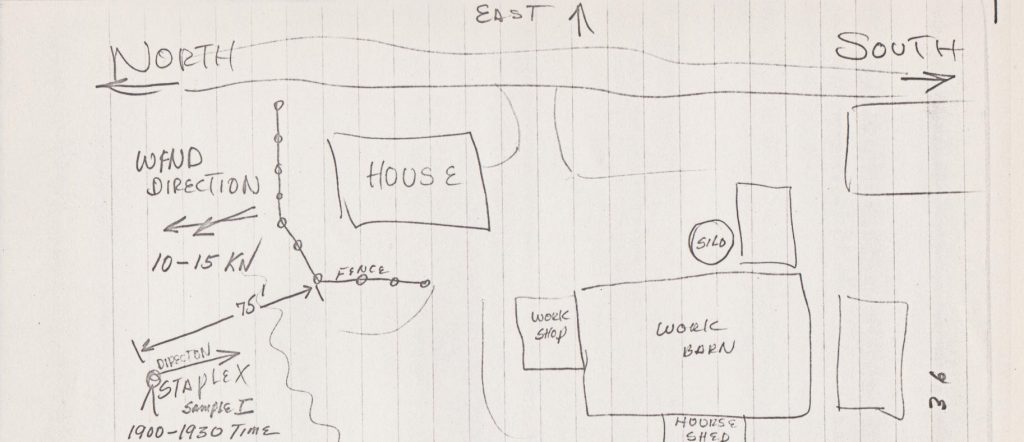 EAST
NORTH
SOUTH
WIND
DIRECTION
HOUSE
10-15 KN
FENCE
SILO
75'
WORK
SHOP
WORK
BARN
DIRECTION
STAPLEX
SAMPLE I
1900-1930 TIME
HOURSE
SHED
36